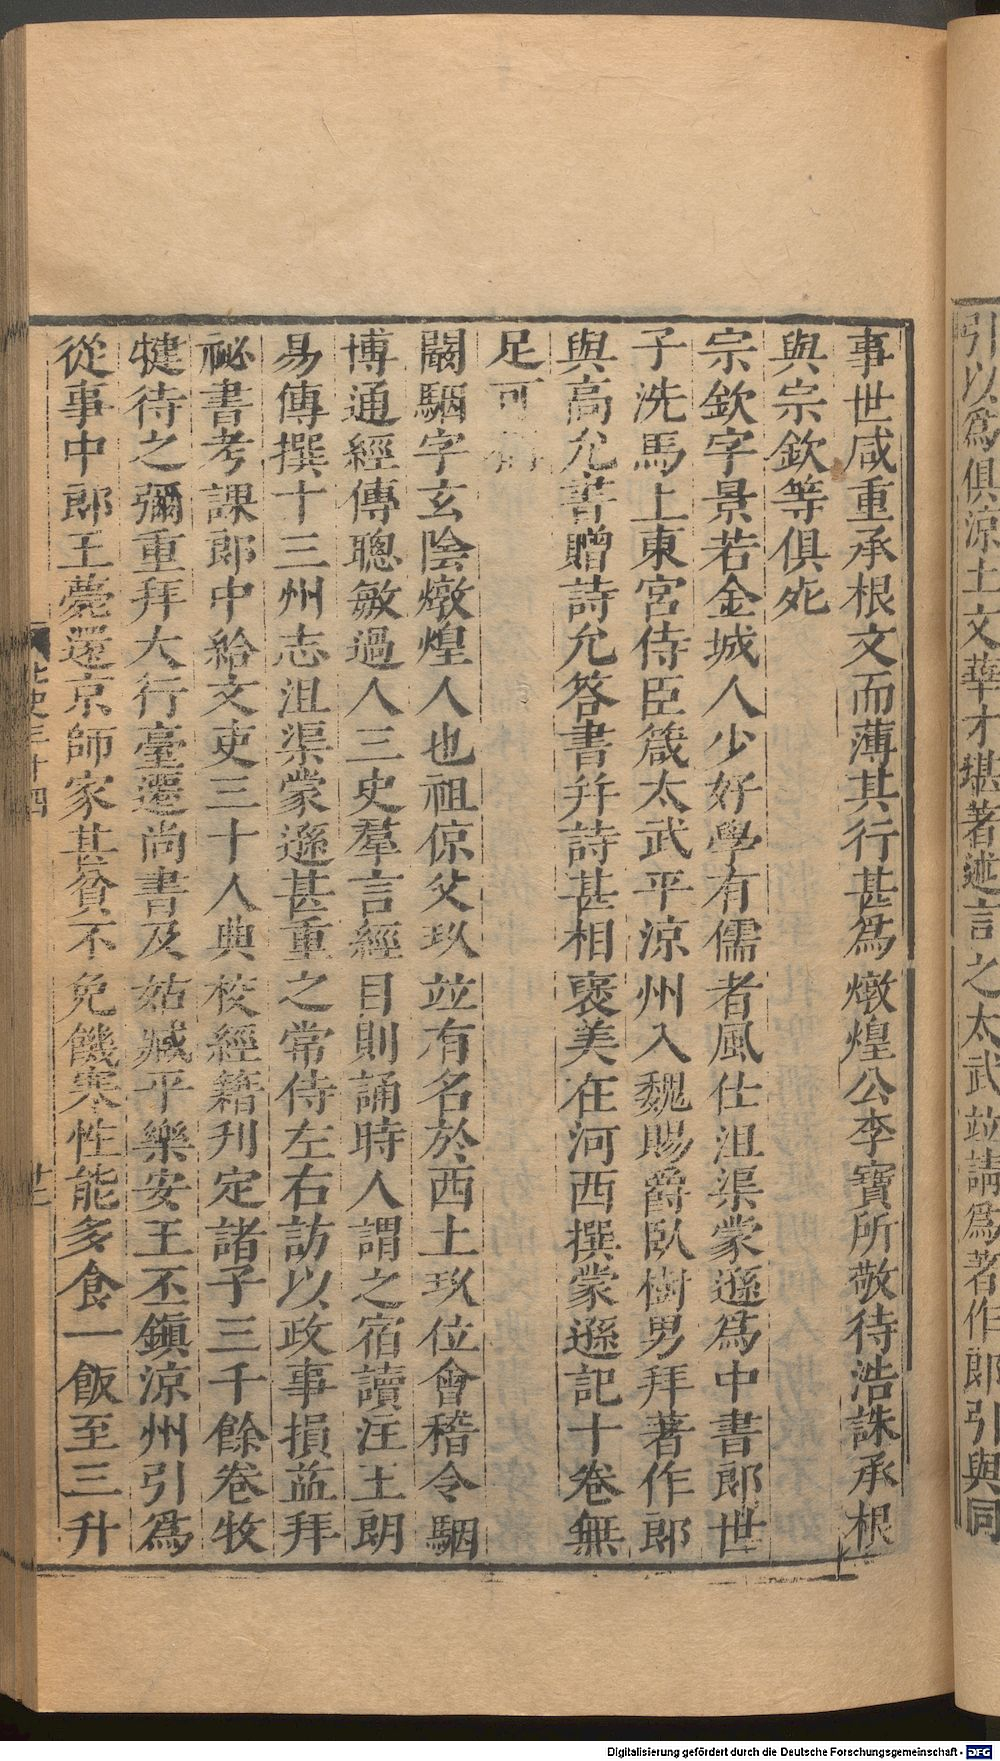 引以爲俱涼土文華才堪著述言之太武竝請爲著作郎引與同
事世咸重承根文而薄其行甚爲燉煌公李寶所敬待浩誅承根
與宗欽等俱死
宗欽字景若金城人少好學有儒者風仕沮渠蒙遜爲中書郎世
子洗馬上東宮侍臣箴太武平涼州入魏賜爵臥樹男拜著作郎
與高允書贈詩允答書并詩甚相褒美在河西撰蒙遜記十卷無
足可
闞駰字玄陰燉煌人也祖倞父玖竝有名於西土玖位會稽令駰
博通經傳聰敏過人三史羣言經目則誦時人謂之宿讀注王朗
易傳撰十三州志沮渠蒙遜甚重之常侍左右訪以政事損益拜
祕書考課郎中給文吏三十人典校經籍刋定諸子三千餘卷牧
犍待之彌重拜大行臺遷尚書及姑臧平樂安王丕鎭涼州引爲
從事中郎王薨還京師家甚貧不免饑寒性能多食一飯至三升
北史三十四
廿二
Digitalisierung gefördert durch die Deutsche Forschungsgemeinschaft - DFG